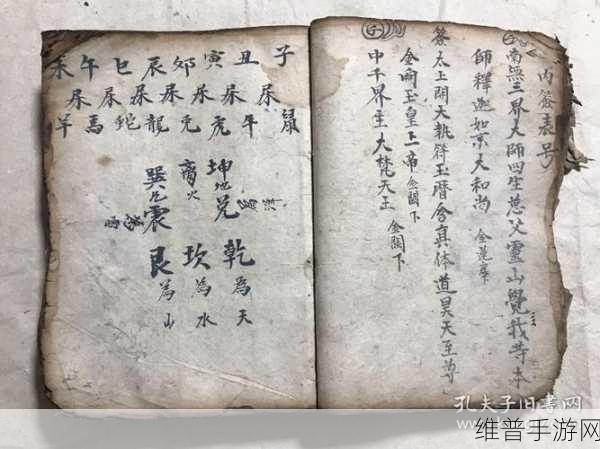 内签表号
南無三界大師四生慈父靈山覺我等本
師釋迦如来大和尚 金莲座
签太上開大執符玉曆含真体道昊天至尊
玉皇上帝 金闕下
中千界主大梵天王 金闕下
子尿鼠
丑尿牛
寅尿虎
卯尿兎
辰尿龍
巳尿蛇
午尿馬
未尿羊
坤地兑
乾為天
火
坎為水
巽震
艮為山
孔夫子旧书网
维普手游网